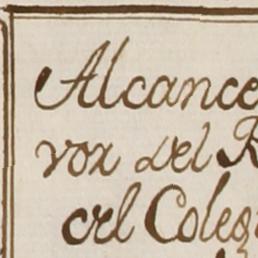 Alcance
vor del R
crl Coleg